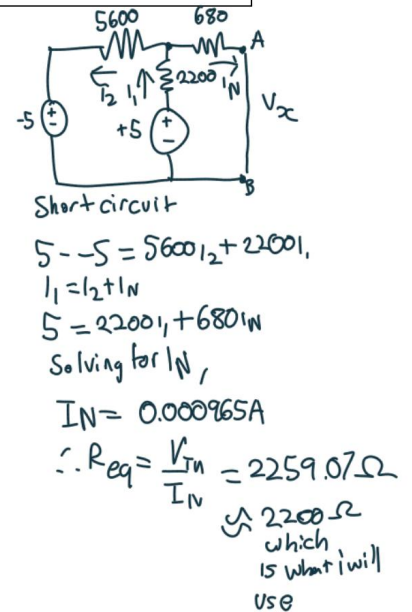 5600 680
A
I₂ I₁ 2200 IN
-5 + - +5 + - Vx
B
Short circuit
5--5 = 5600I₂+2200I₁
I₁=I₂+IN
5 = 2200I₁+680IN
Solving for IN,
IN= 0.000965A
∴Req= VTH/IN = 2259.07Ω
≈ 2200Ω
which
is what i will
use